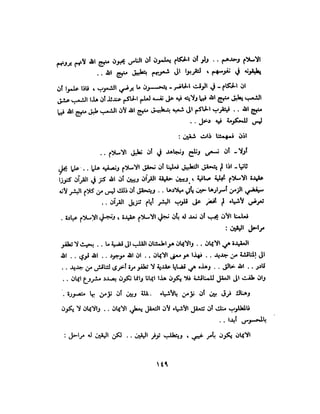 الاسلام وحدهم .. ولو أن الحكام يعلمون أن الناس يحبون منهج الله لأنهم يرونهم
يطبقونه في نفوسهم ، لتقربوا الى شعوبهم بتطبيق منهج الله ..
ان الحكام - في الوقت الحاضر - يتحسسون ما يرضي الشعوب ، فاذا علموا أن
الشعب يطبق منهج الله فيما ولايته فيه على نفسه لعلم الحاكم عندئذ أن هذا الشعب عشق
منهج الله .. فيتقرب الحاكم الى شعبه بتطبيق منهج الله لأن الشعب طبق منهج الله فيما
ليس للحكومة فيه دخل ..
اذن فمهمتنا ذات شقين :
أولا - أن نسعى ونلح ونجاهد في أن نطبق الاسلام ..
ثانيا - اذا لم يتحقق التطبيق فعلينا أن نحقق الاسلام ونصفيه علما .. علما يجلي
عقيدة الاسلام تجلية صافية ، ويبين حقيقة القرآن ويبين أن الله كنز في القرآن كنوزا
سيفضي الزمن أسرارها حين يأتي ميلادها .. ويتحقق أن ذلك ليس من كلام البشر لأنه
تعرض لأشياء لم تخطر على قلوب البشر أيام تنزيل القرآن ..
فعملنا الآن يجب أن نمد له بأن نجلي الاسلام عقيدة ، ونجلي الاسلام عبادة .
مراحل اليقين :
العقيدة هي الايمان .. والايمان هو اطمئنان القلب الى قضية ما .. بحيث لا تطفر
الى المناقشة من جديد .. فهذا هو معنى الايمان .. ان الله موجود .. الله قوي .. الله
قادر .. الله خالق .. وهذه هي قضايا عقدية لا تطفو مرة أخرى لتناقش من جديد ..
وان طفت الى العقل للمناقشة فلا يكون هذا ايمانا وانما نكون بصدد مشروع ايمان ..
وهناك فرق بين أن نؤمن بالأشياء علة وبين أن نؤمن بها متصورة .
فالمطلوب منك أن تتعقل الأشياء لأن التعقل يعطي الايمان .. والايمان لا يكون
بالمحسوس أبدا ..
الايمان يكون بأمر غيبي ، ويتطلب توفر اليقين .. لكن اليقين له مراحل :
١٤٩